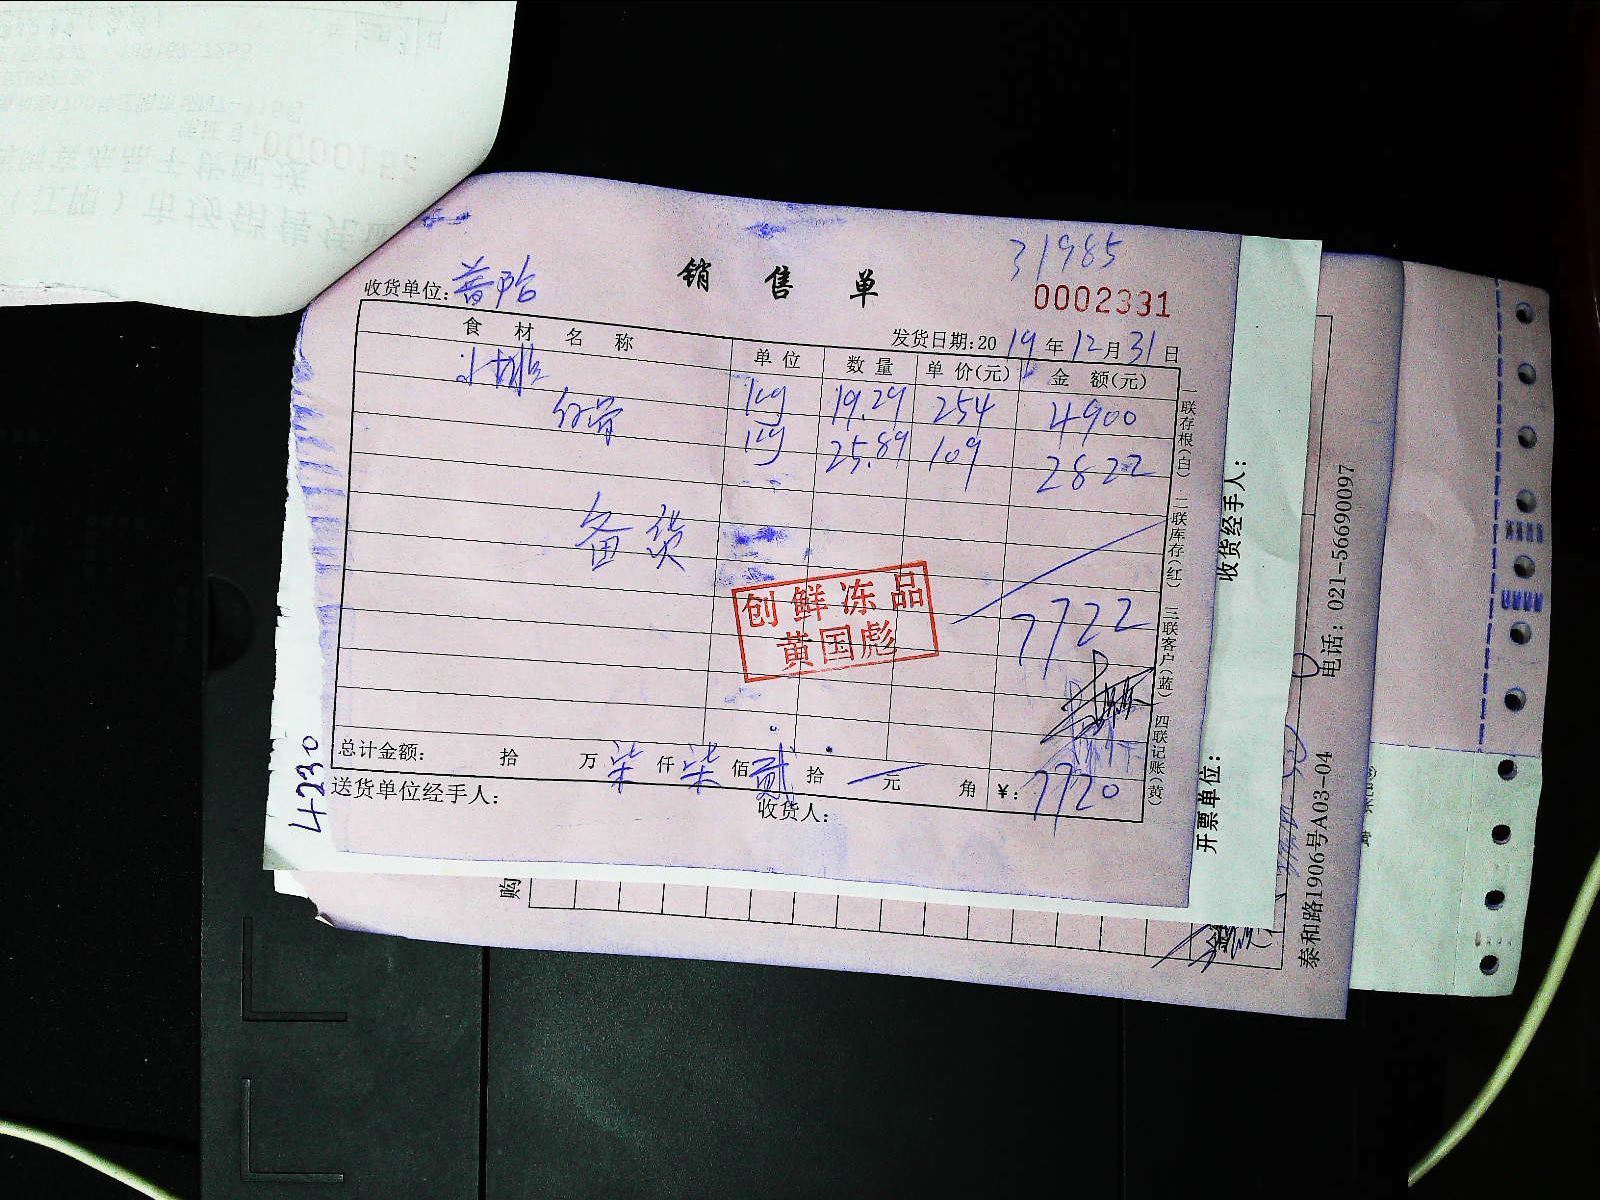 31985
销售单
0002331
收货单位:普陀
发货日期:2019年12月31日
食材名称 单位 数量 单价(元) 金额(元)
小排 kg 19.29 254 4900
仔骨 kg 25.89 109 2822
备货
创鲜冻品
黄国彪
7722
总计金额: 拾 万柒仟柒佰贰拾 元 角 ¥:7720
送货单位经手人:
收货人:
一联存根(白) 二联库存(红) 三联客户(蓝) 四联记账(黄)
4230
收货经手人:
开票单位:
泰和路1906号A03-04 电话:021-56690097
购